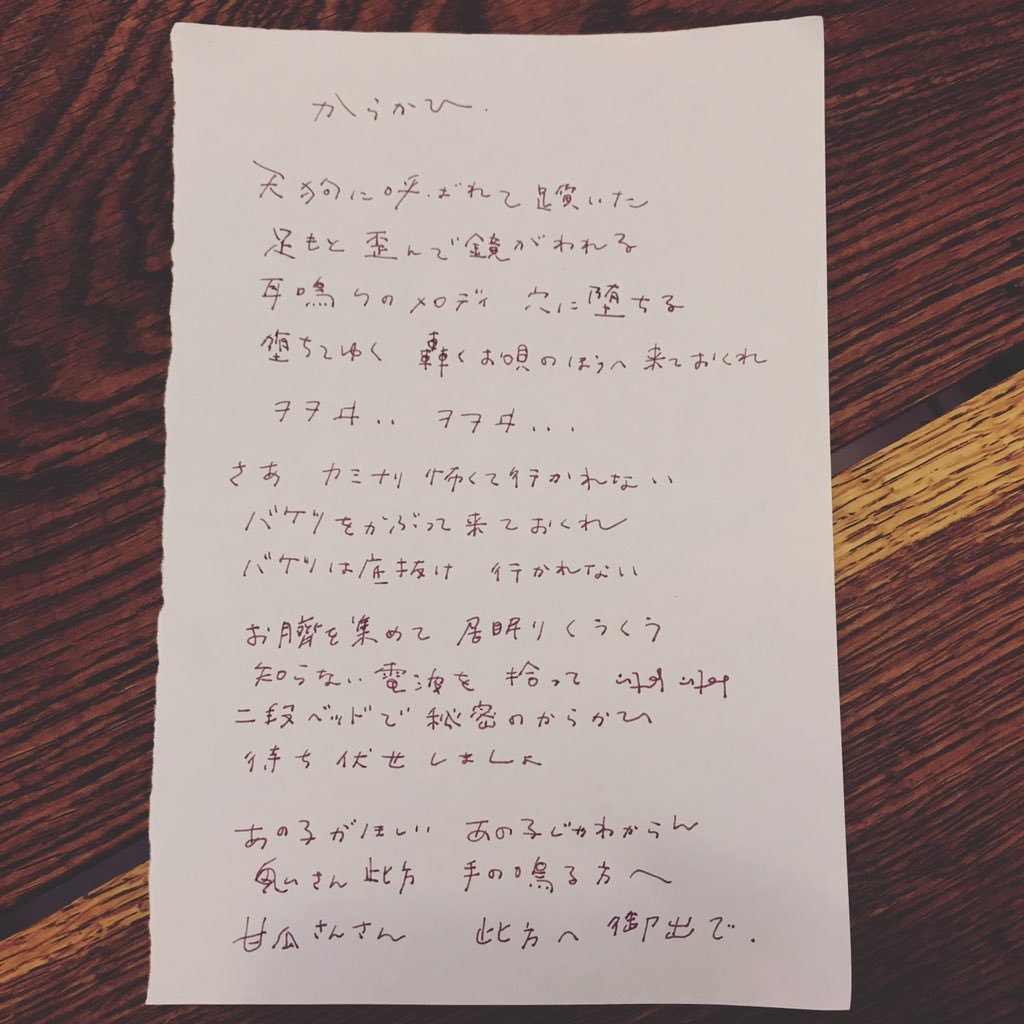 からかひ.
天狗に呼ばれて躓いた
足もと 歪んで鏡がわれる
耳鳴りのメロディ 穴に堕ちる
堕ちてゆく 轟くお唄のほうへ 来ておくれ
ヲヲヰ.. ヲヲヰ...
さあ カミナリ怖くて行かれない
バケツをかぶって来ておくれ
バケツは底抜け 行かれない
お臍を集めて 居眠りくうくう
知らない電波を 拾って
二段ベッドで秘密のからかひ
待ち伏せしましょ
あの子がほしい あの子じゃわからん
鬼さん此方 手の鳴る方へ
甘瓜さんさん 此方へ御出で.